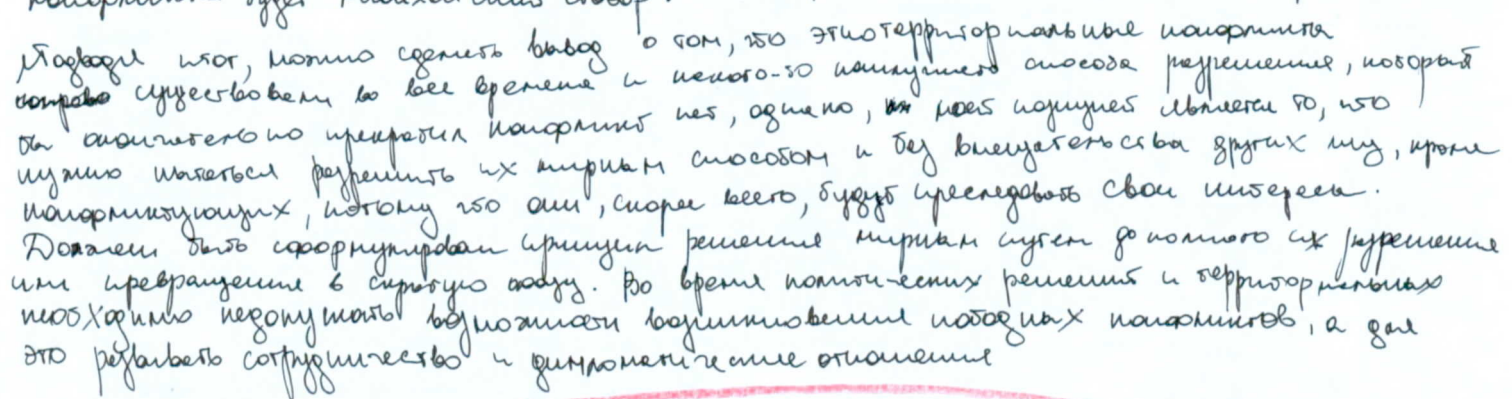 конфликта будет
Подводя итог, можно сделать вывод о том, что этнотерриториальные конфликты
существовали во все времена и какого-то наилучшего способа разрешения, который
бы окончательно прекратил конфликт нет, однако, моей позицией является то, что
нужно пытаться разрешить их мирным способом и без вмешательства других лиц, кроме
конфликтующих, потому что они, скорее всего, будут преследовать свои интересы.
Должен быть сформулирован принцип решения мирным путем до полного их разрешения
или превращения в скрытую фазу. Во время политических решений и территориальных
необходимо недопускать возможности возникновения подобных конфликтов, а для
это развивать сотрудничество и дипломатические отношения